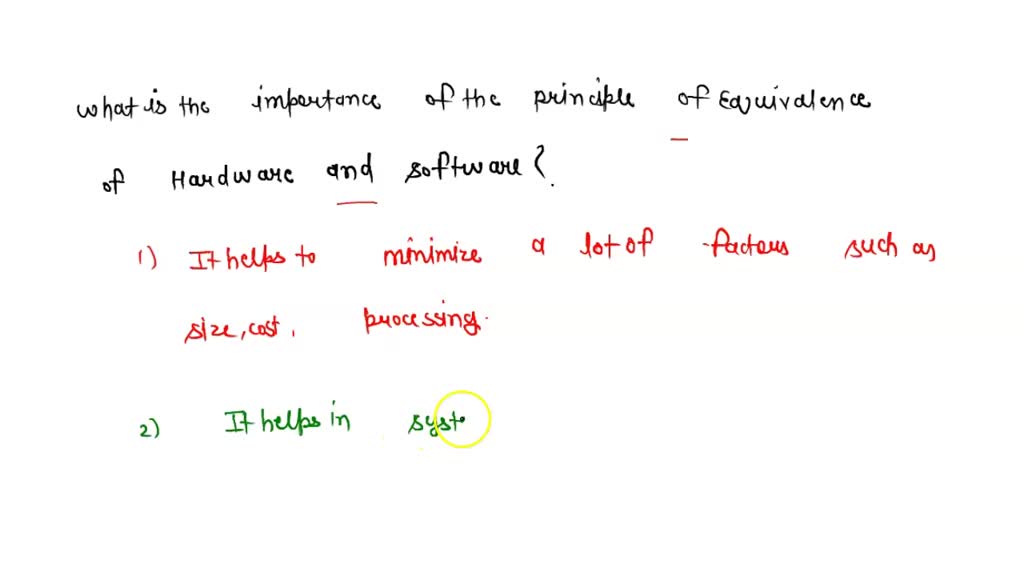 What is the importance of the principle of Equivalence
of Hardware and software?
1) It helps to minimize a lot of factors such as
size, cost, processing.
2) It helps in syst